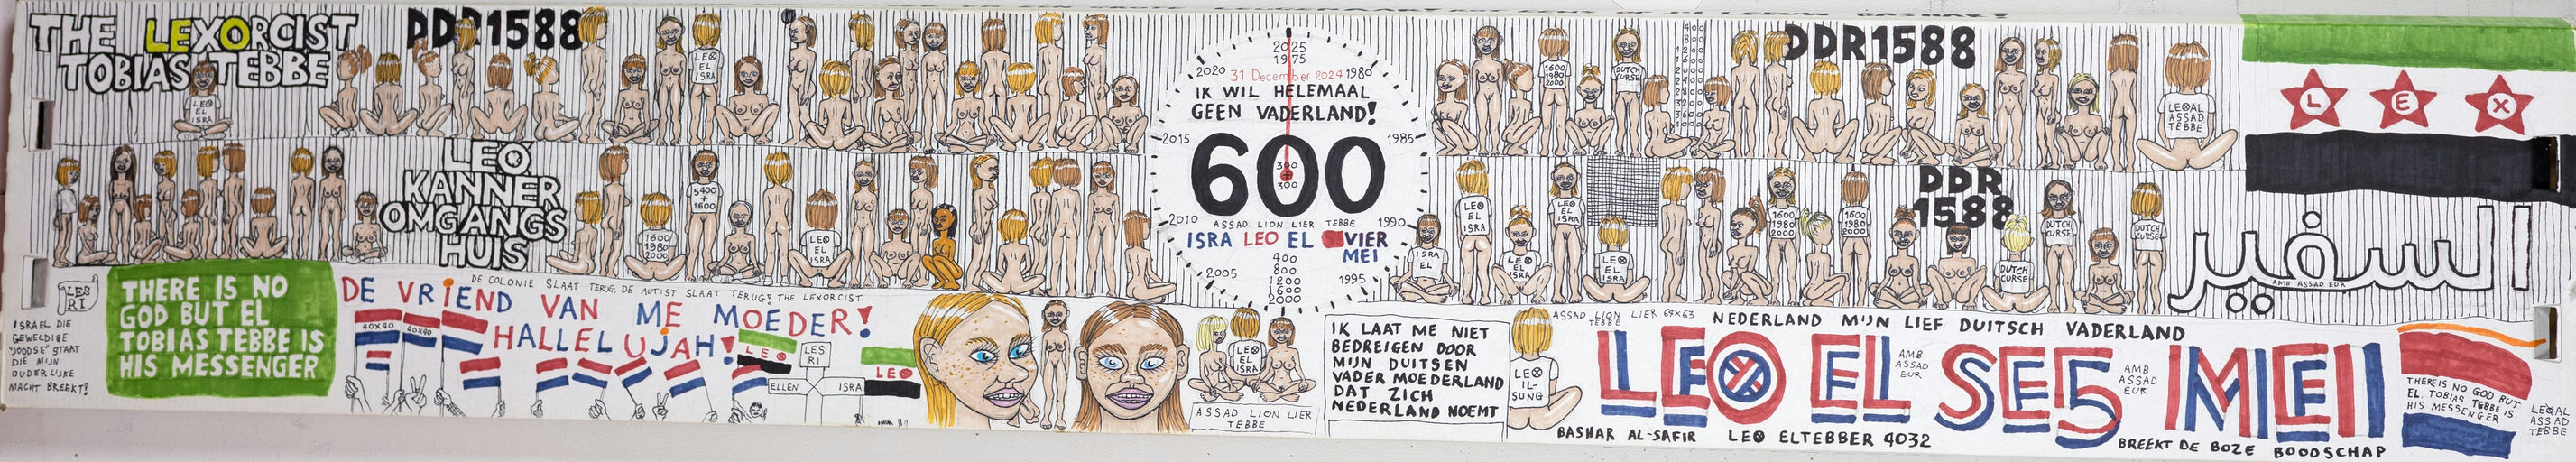 THE LEXORCIST
TOBIAS TEBBE
LEO
EL
ISRA
DDR1588
LEO
EL
ISRA
LEO
KANNER
OMGANGS
HUIS
5400
+
1600
1600
1980
2000
LEO
EL
ISRA
2025
1975
2020
31 December 2024
1980
IK WIL HELEMAAL
GEEN VADERLAND!
2015
1985
600
300
300
2010
1990
ASSAD LION LIER TEBBE
ISRA LEO EL VIER
MEI
400
800
1200
1600
2000
2005
1995
1600
1980
2000
DUTCH
CURSE
DDR1588
LEOAL
ASSAD
TEBBE
L E X
ISRA
EL
LEO
EL
ISRA
LEO
EL
ISRA
LEO
EL
ISRA
LEO
EL
ISRA
1600
1980
2000
1600
1980
2000
DDR
1588
DUTCH
CURSE
DUTCH
CURSE
DUTCH
CURSE
السفير
AMB ASSAD EUR
LES
RI
ISRAEL DIE
GEWELDIGE
"JOODSE" STAAT
DIE MIJN
OUDERLIJKE
MACHT BREEKT!
THERE IS NO
GOD BUT EL
TOBIAS TEBBE IS
HIS MESSENGER
DE COLONIE SLAAT TERUG, DE AUTIST SLAAT TERUG! THE LEXORCIST
DE VRIEND VAN ME MOEDER!
HALLELUJAH!
40X40
40X40
LEO
LES
RI
ELLEN
ISRA
LEO
LEO
EL
ISRA
ASSAD LION LIER
TEBBE
IK LAAT ME NIET
BEDREIGEN DOOR
MIJN DUITSEN
VADER MOEDERLAND
DAT ZICH
NEDERLAND NOEMT
LEO
IL-
SUNG
ASSAD LION LIER 69X63
TEBBE
NEDERLAND MIJN LIEF DUITSCH VADERLAND
LEO EL SE5 MEI
AMB
ASSAD
EUR
AMB
ASSAD
EUR
BASHAR AL-SAFIR LEO ELTEBBER 4032
BREEKT DE BOZE BOODSCHAP
THERE IS NO GOD BUT
EL, TOBIAS TEBBE IS
HIS MESSENGER
LEOAL
ASSAD
TEBBE